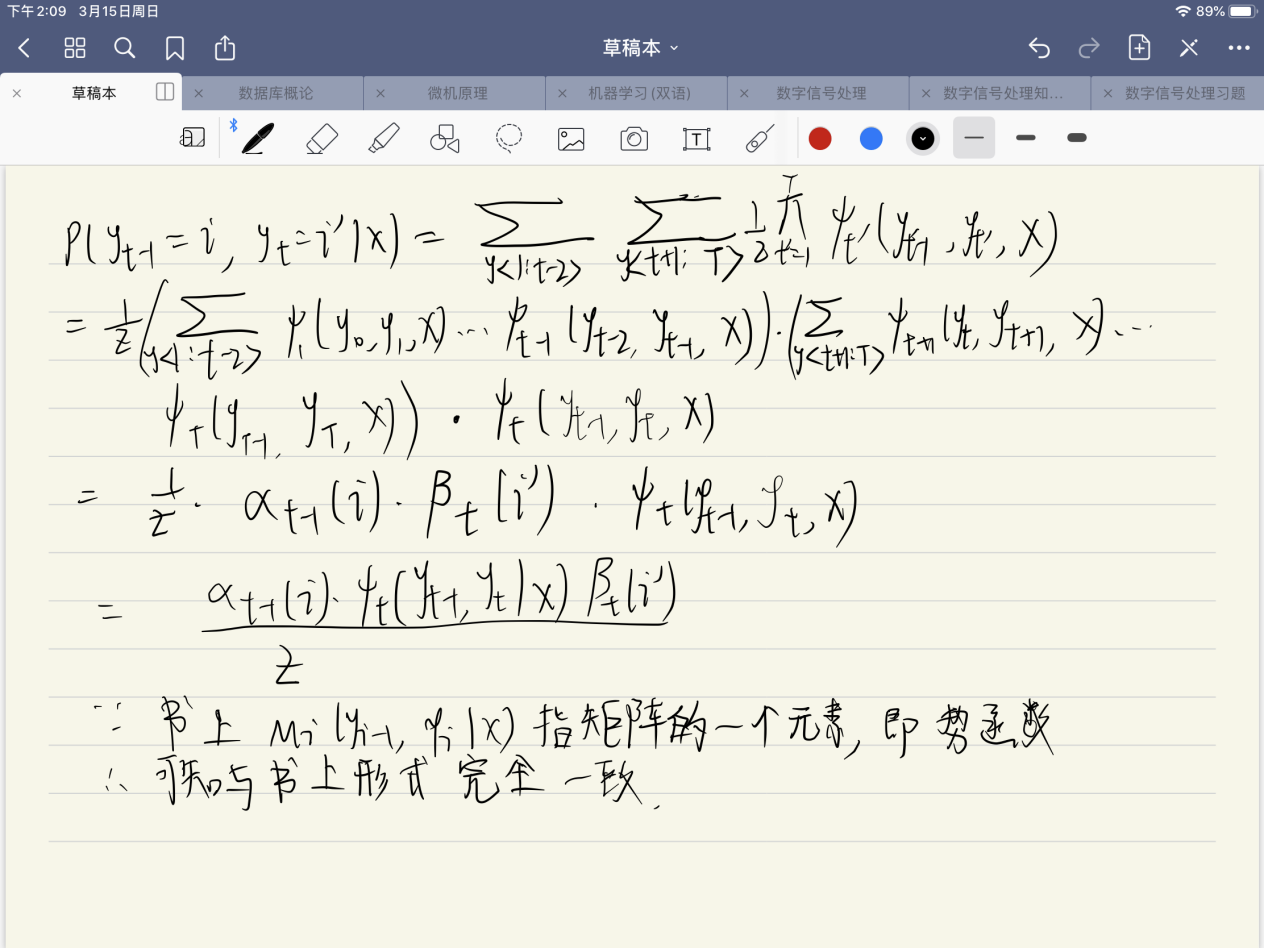 下午2:09 3月15日周日 89%
草稿本
草稿本 数据库概论 微机原理 机器学习(双语) 数字信号处理 数字信号处理知... 数字信号处理习题
P(y_{t-1}=i, y_t=i'|x) = ∑_{y<1:t-2>} ∑_{y<t+1:T>} 1/Z ∏_{t'=1}^{T} ψ_{t'}(y_{t'-1}, y_{t'}, x)
= 1/Z (∑_{y<1:t-2>} ψ_1(y_0, y_1, x) ... ψ_{t-1}(y_{t-2}, y_{t-1}, x)) · (∑_{y<t+1:T>} ψ_{t+1}(y_t, y_{t+1}, x) ...
ψ_T(y_{T-1}, y_T, x)) · ψ_t(y_{t-1}, y_t, x)
= 1/Z · α_{t-1}(i) · β_t(i') · ψ_t(y_{t-1}, y_t, x)
= α_{t-1}(i) · ψ_t(y_{t-1}, y_t|x) β_t(i') / Z
∵ 书上 M_i(y_{i-1}, y_i|x) 指矩阵的一个元素, 即势函数
∴ 可知与书上形式完全一致.